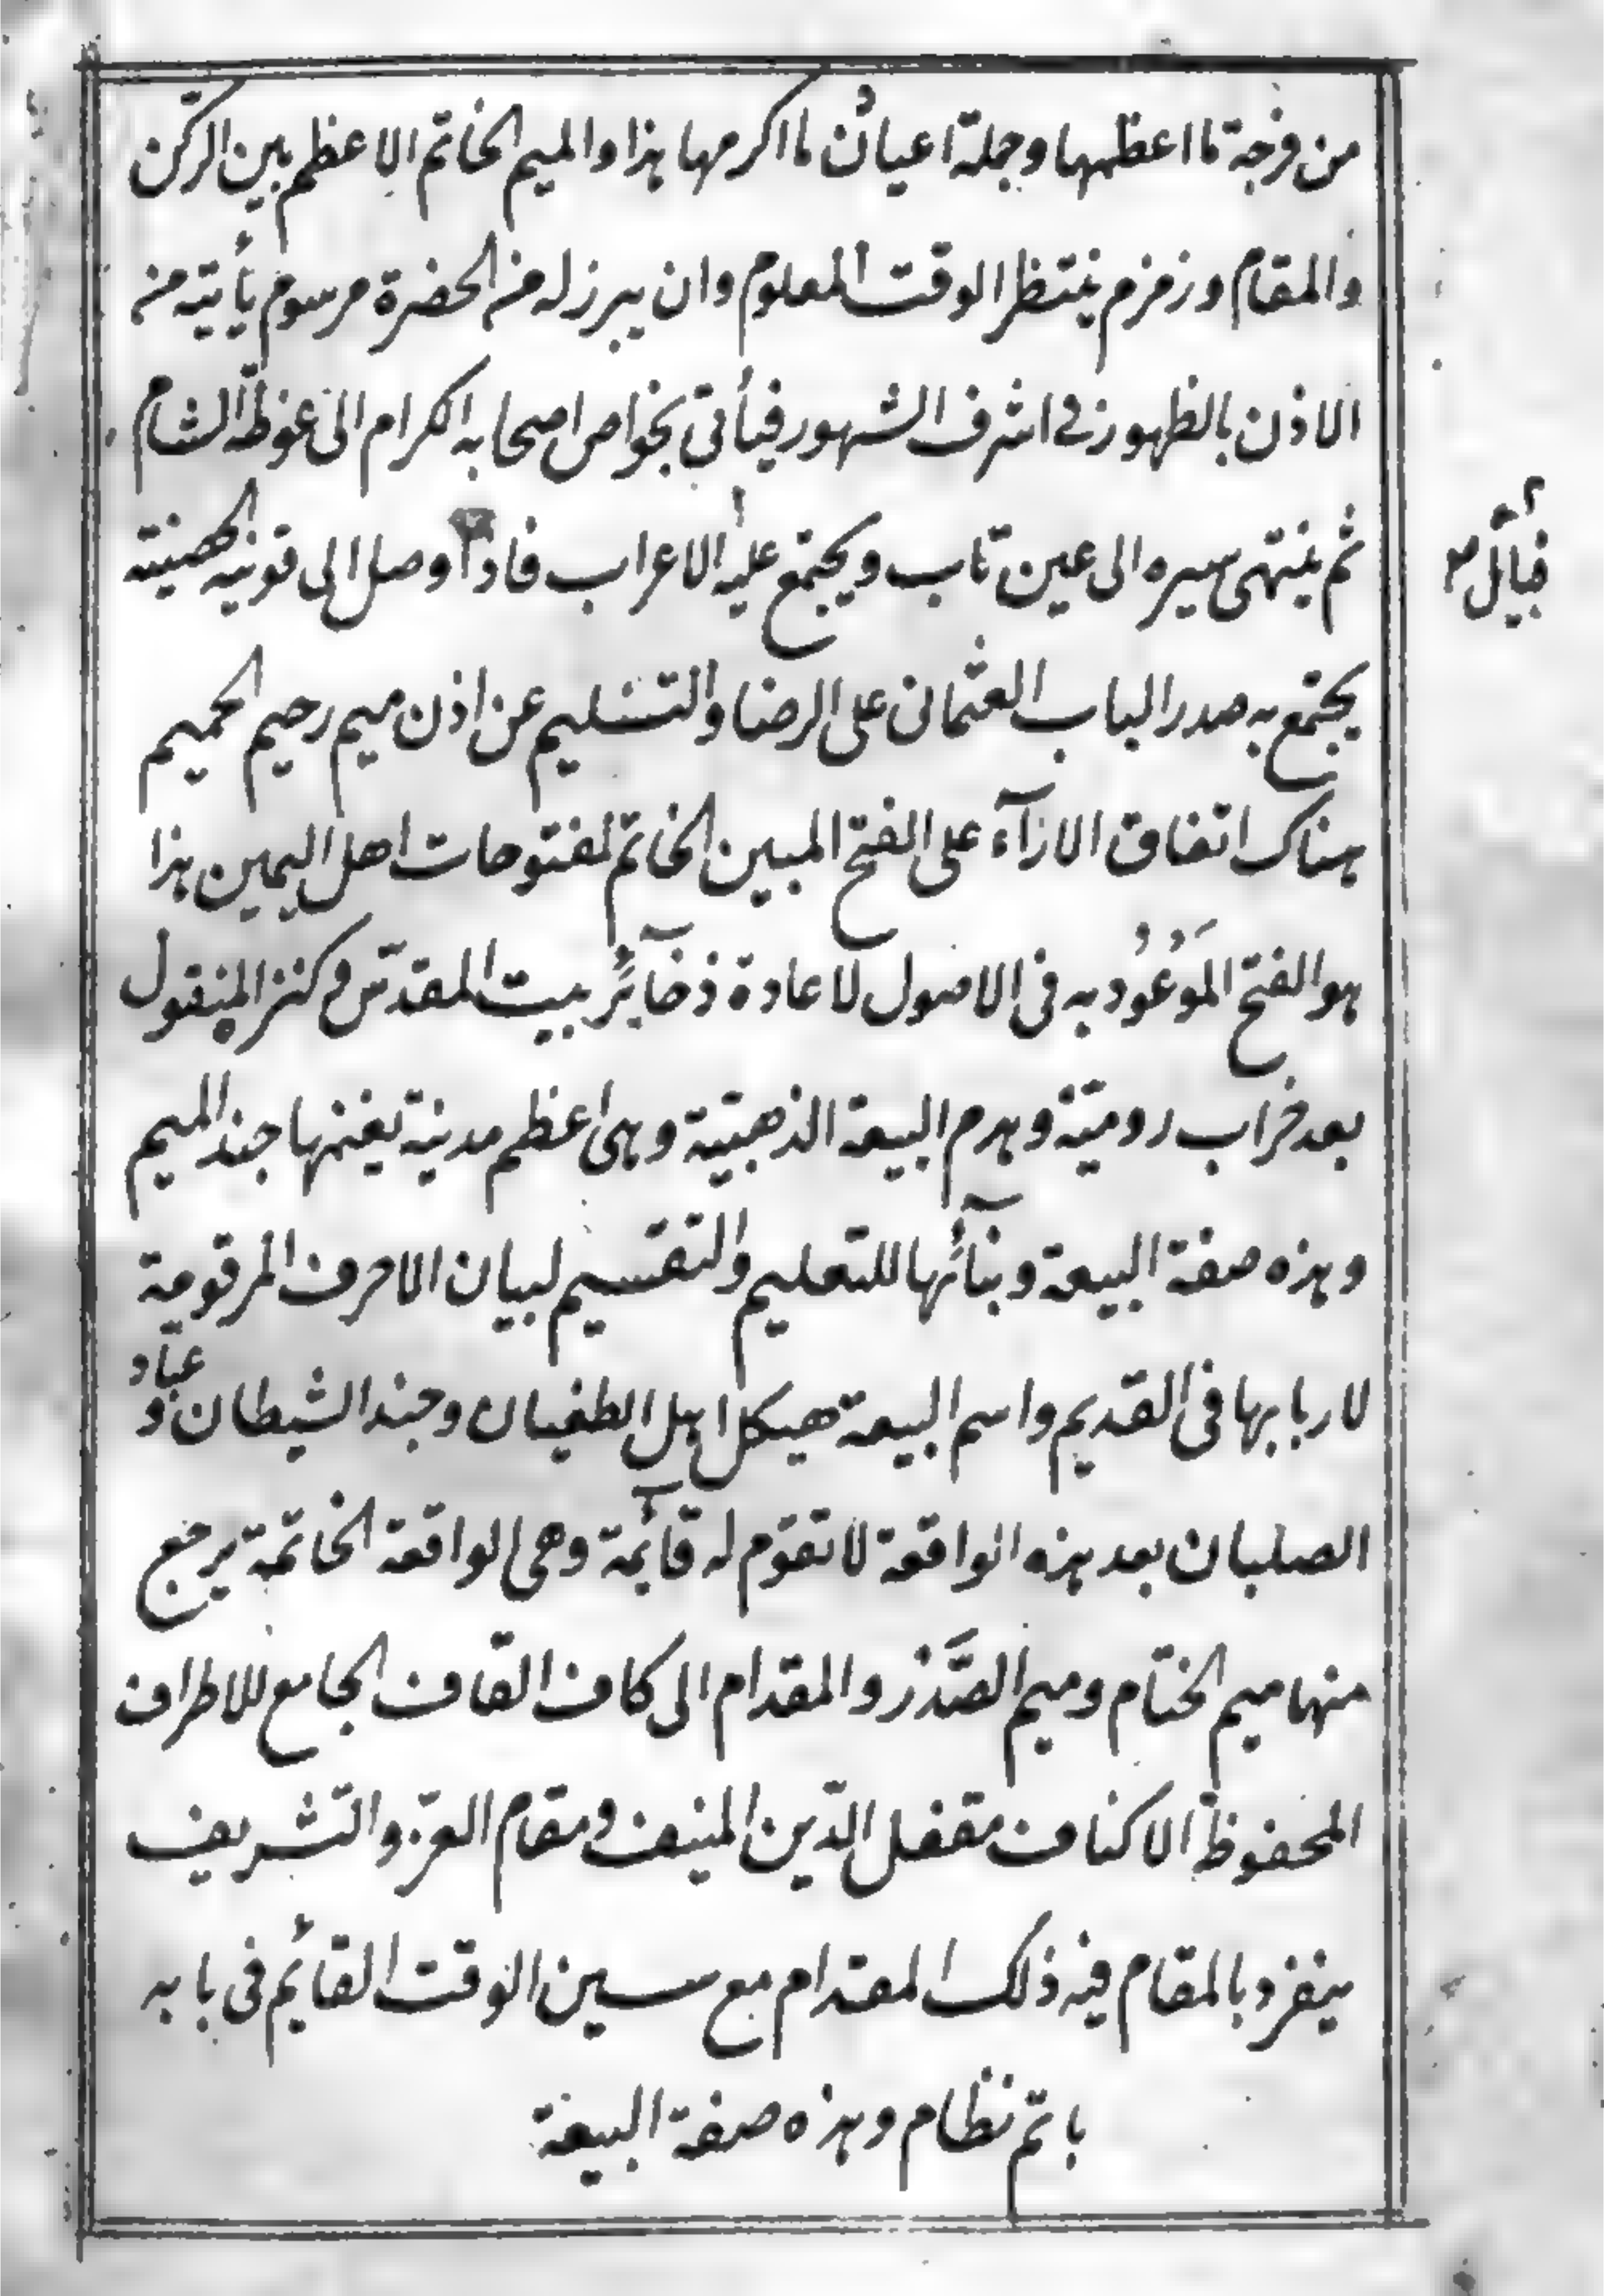 من فرجة ما اعظمها وجملة اعيان ما اكرمها هذا والميم الخاتم الاعظم بين الركن
والمقام وزمزم ينتظر الوقت المعلوم وان يبرز له من الحضرة مرسوم يأتيه من
الاذن بالظهور في اشرف الشهور فيأتي بخواص اصحابه الكرام الى غوظة الشام
ثم ينتهى سيره الى عين تاب ويجتمع عليه الاعراب فاذا وصل الى قونيه الحصينة
قبائل صح
يجتمع به صدر الباب العثمانى على الرضا والتسليم عن اذن ميم رحيم الحميم
هناك اتفاق الارآء على الفتح المبين الخاتم لمفتوحات اهل اليمين هذا
هو الفتح المَوْعُود به فى الاصول لاعادة ذخآئر بيت المقدس وكنز المنقول
بعد خراب روميّة وهدم البيعة الذهبيّة وهى اعظم مدينة يغنمها جند الميم
وهذه صفة البيعة وبنآئها للتعليم والتقسيم لبيان الاحرف المرقومة
لاربابها فى القديم واسم البيعة هيكل اهل الطغيان وجند الشيطان وعبّاد
الصلبان بعد هذه الواقعة لا تقوم له قآئمة وهى الواقعة الخاتمة يرجع
منها ميم الختام وميم الصَّدر والمقدام الى كاف القاف الجامع للاطراف
المحفوظ الاكناف مقفل الدّين المنيف ومقام العزّ والتشريف
ينفرد بالمقام فيه ذلك المقدام مع سين الوقت القائم فى بابه
باتم نظام وهذه صفة البيعة